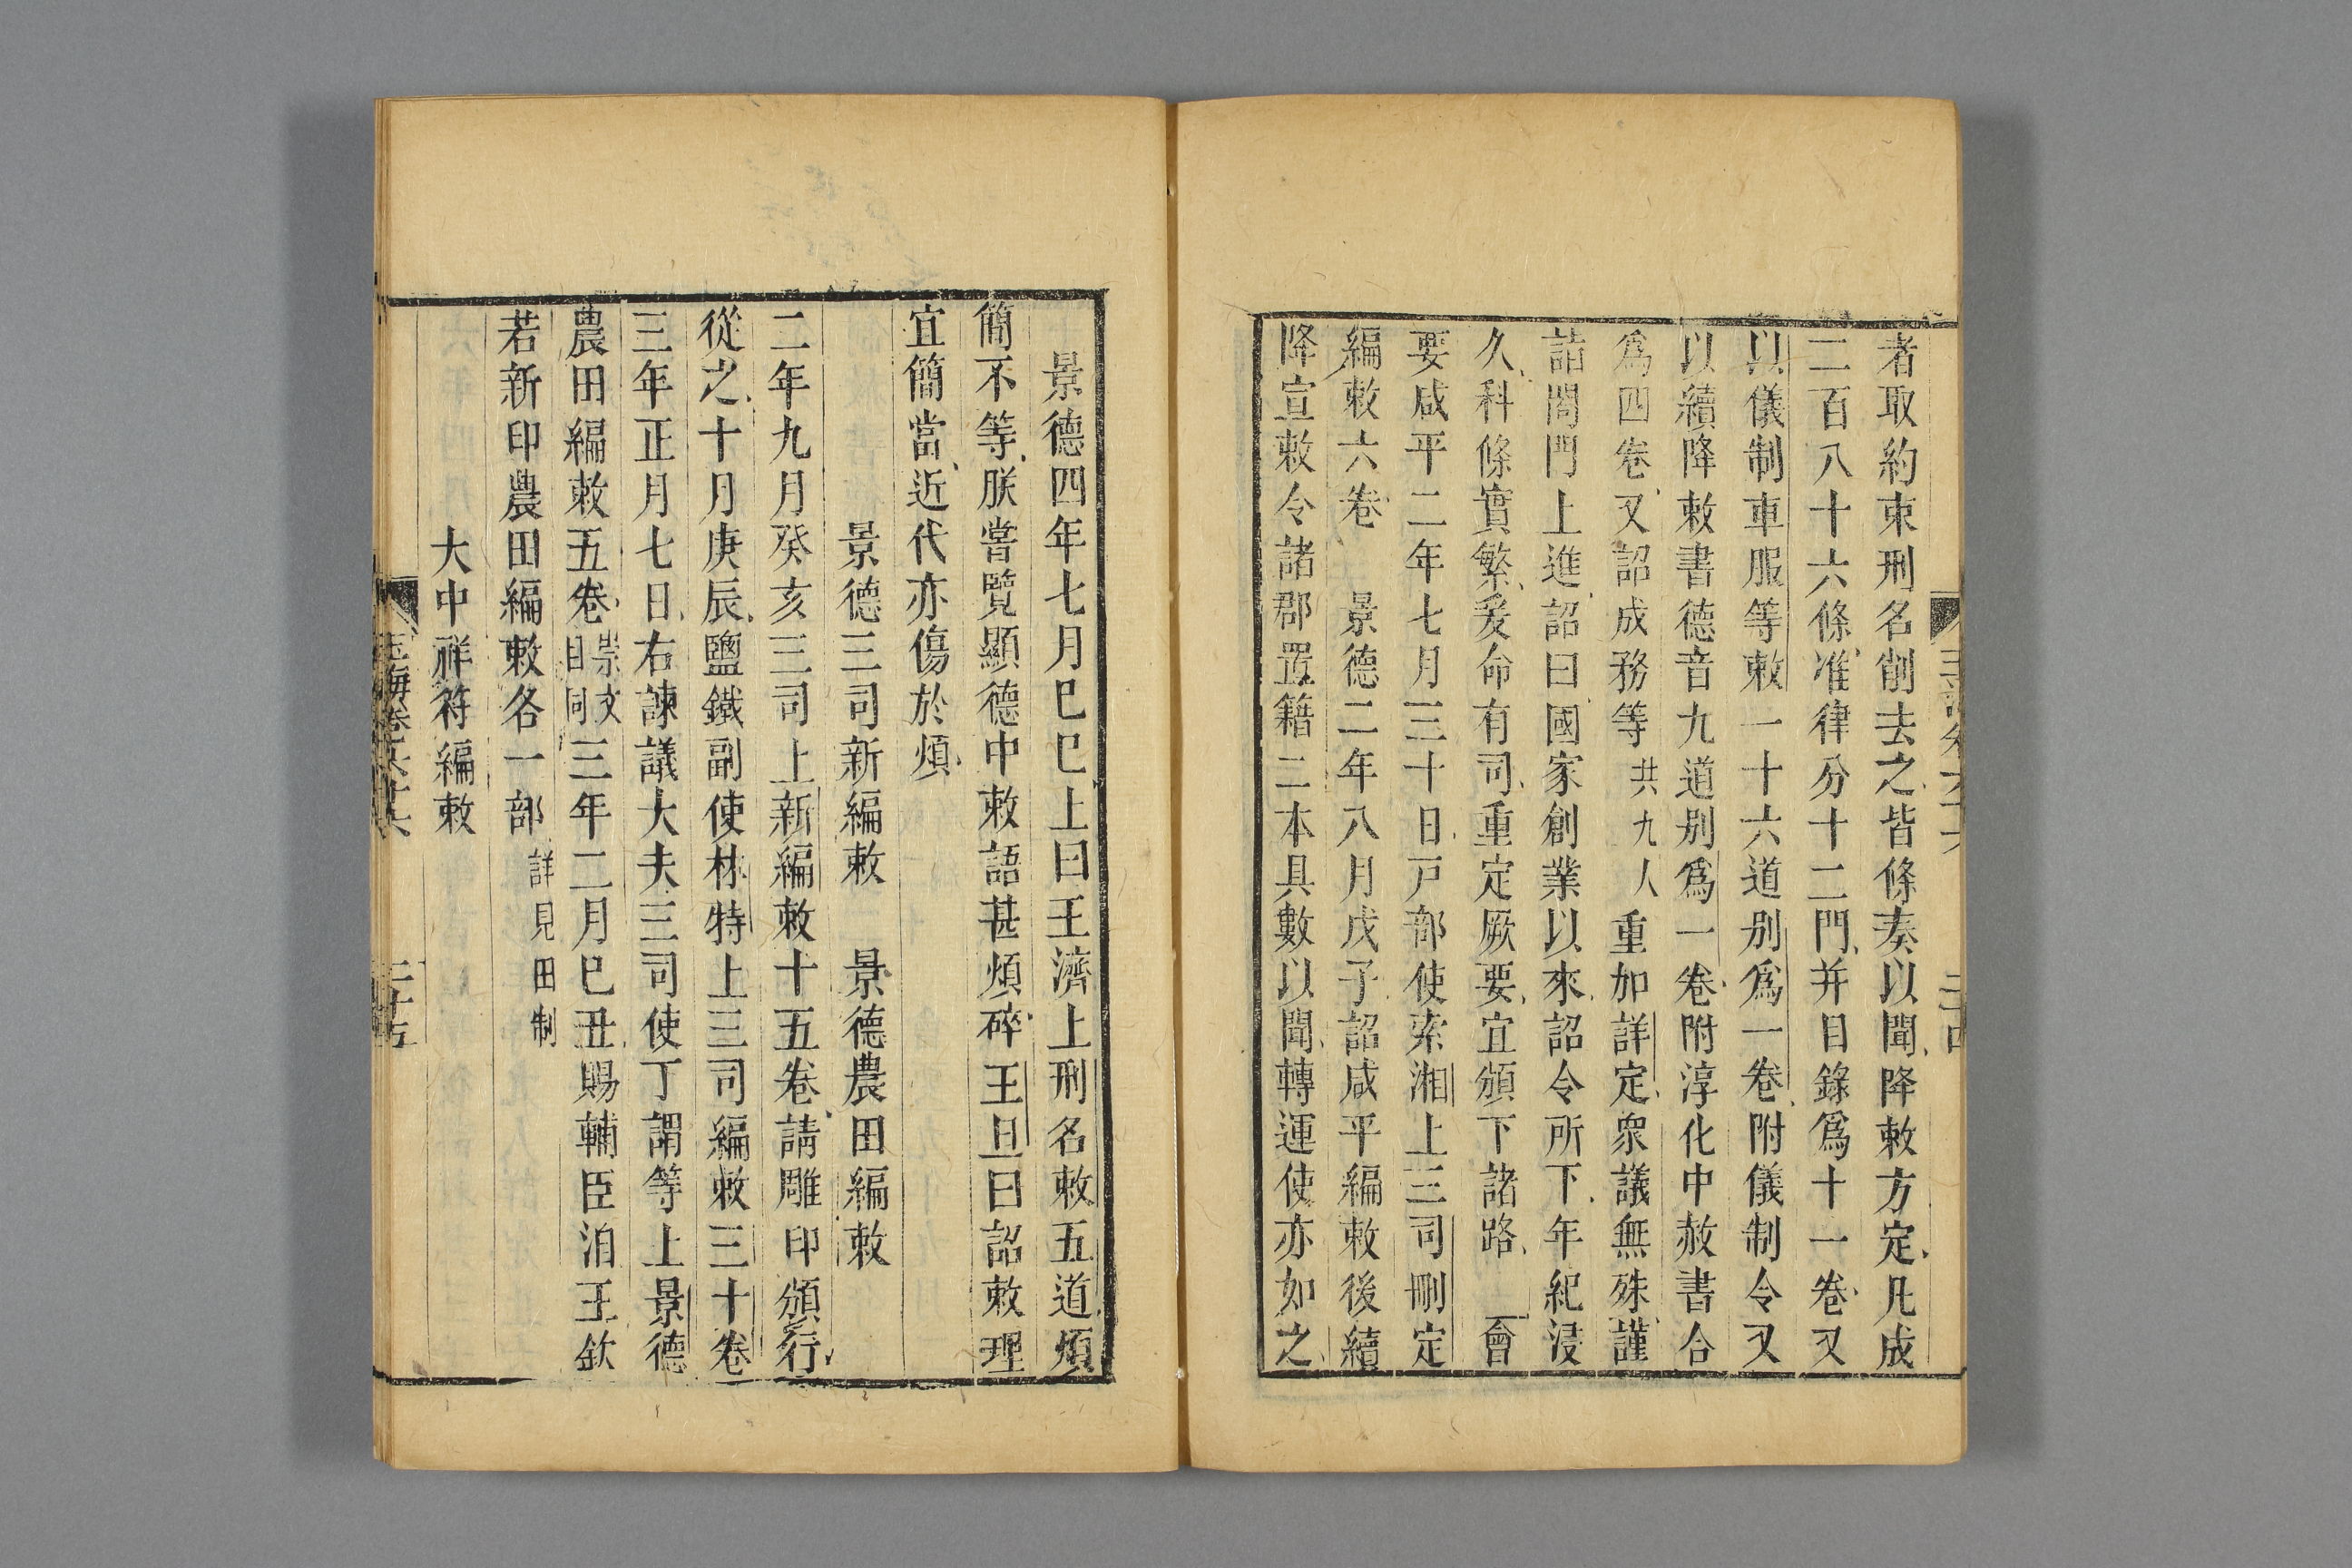 者取約束刑名削去之皆條奏以聞降敕方定凡成
二百八十六條准律分十二門并目錄爲十一卷又
以儀制車服等敕一十六道別爲一卷附儀制令又
以續降敕書德音九道別爲一卷附淳化中赦書合
爲四卷又詔成務等共九人重加詳定衆議無殊謹
詣閤門上進詔曰國家創業以來詔令所下年紀浸
久科條實繁爰命有司重定厥要宜頒下諸路 會
要咸平二年七月三十日戸部使索湘上三司刪定
編敕六卷 景德二年八月戊子詔咸平編敕後續
降宣敕令諸郡置籍二本具數以聞轉運使亦如之
景德四年七月巳巳上曰王濟上刑名敕五道煩
簡不等朕嘗覽顯德中敕語甚煩碎王旦曰詔敕理
宜簡當近代亦傷於煩
景德三司新編敕 景德農田編敕
二年九月癸亥三司上新編敕十五卷請雕印頒行
從之十月庚辰鹽鐵副使林特上三司編敕三十卷
三年正月七日右諫議大夫三司使丁謂等上景德
農田編敕五卷崇文目同三年二月巳丑賜輔臣洎王欽
若新印農田編敕各一部詳見田制
大中祥符編敕
玉海卷六十六
二十五